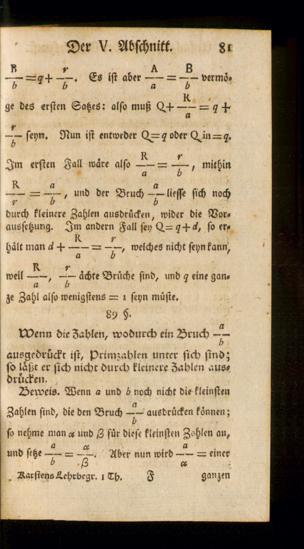 Der V. Abschnitt. 81
B/b = q + r/b. Es ist aber A/a = B/b vermö-
ge des ersten Satzes: also muß Q + R/a = q +
r/b seyn. Nun ist entweder Q=q oder Q in=q.
Im ersten Fall wäre also R/a = r/b, mithin
R/r = a/b, und der Bruch a/b liesse sich noch
durch kleinere Zahlen ausdrücken, wider die Vor-
aussetzung. Im andern Fall sey Q=q+d, so er-
hält man d + R/a = r/b, welches nicht seyn kann,
weil R/a, r/b ächte Brüche sind, und q eine gan-
ze Zahl also wenigstens = 1 seyn müste.
89 §.
Wenn die Zahlen, wodurch ein Bruch a/b
ausgedrückt ist, Primzahlen unter sich sind;
so läßt er sich nicht durch kleinere Zahlen aus-
drücken.
Beweis. Wenn a und b noch nicht die kleinsten
Zahlen sind, die den Bruch a/b ausdrücken können;
so nehme man α und β für diese kleinsten Zahlen an,
und setze a/b = α/β. Aber nun wird a/α = einer
Karstens Lehrbegr. 1 Th. F ganzen